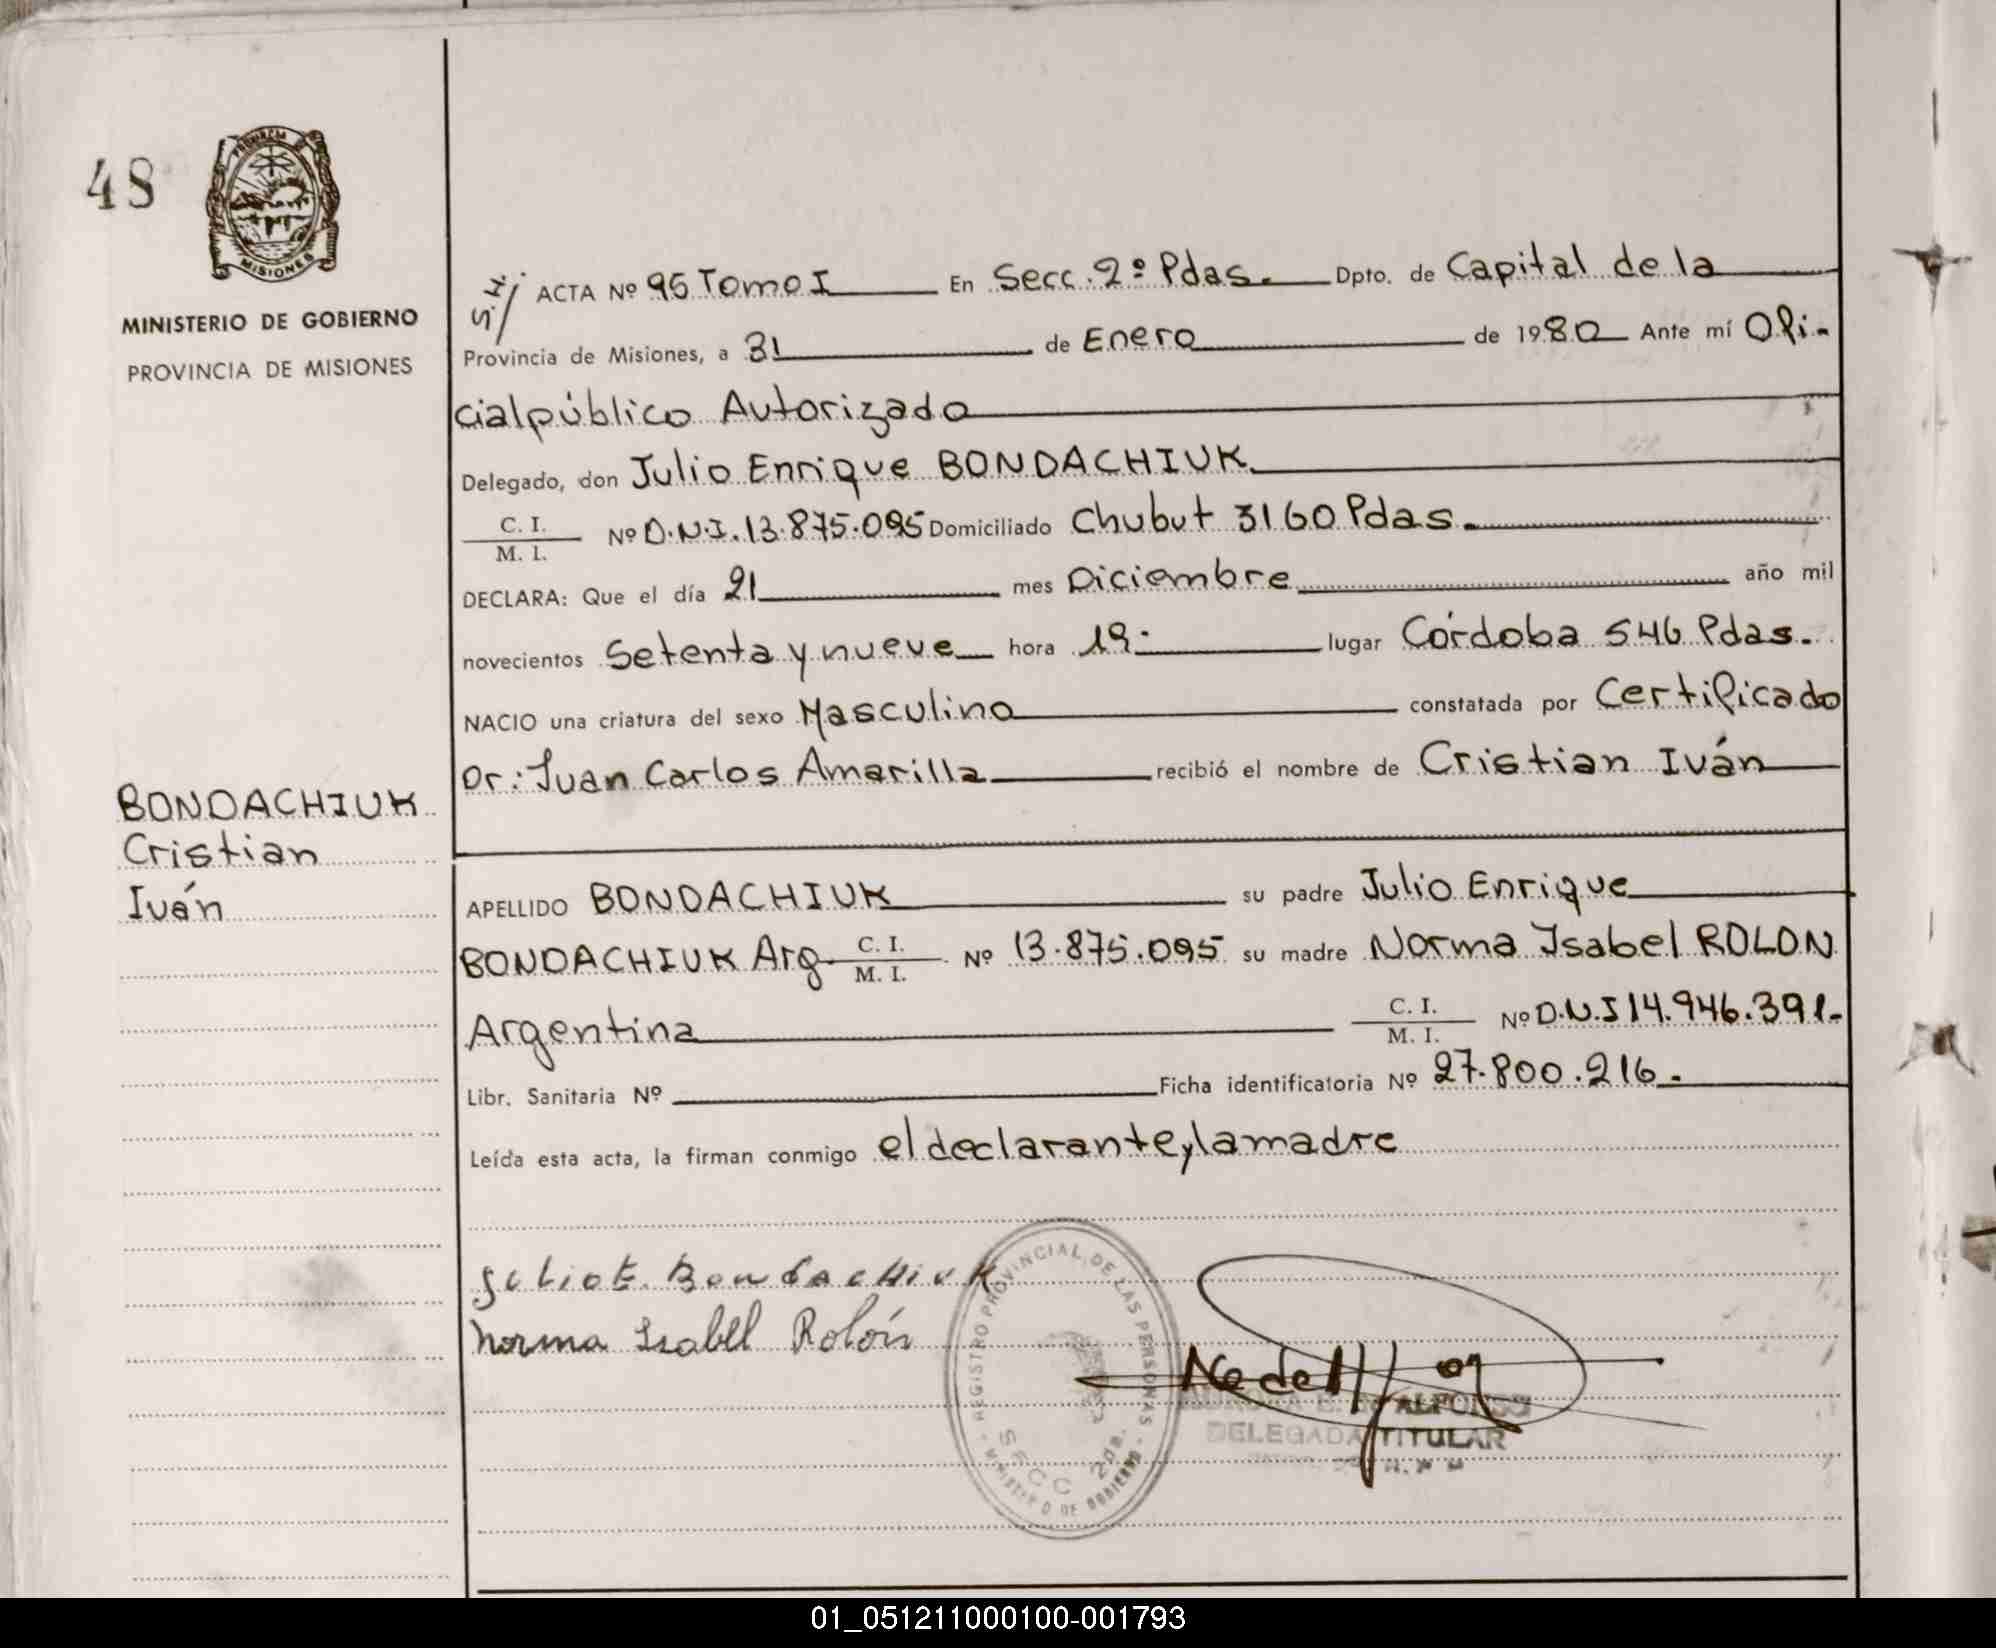 48
PROVINCIA DE
MISIONES
MINISTERIO DE GOBIERNO
PROVINCIA DE MISIONES
BONDACHIUK
Cristian
Iván
ACTA Nº 95 Tomo I En Secc. 2º Pdas. Dpto. de Capital de la
Provincia de Misiones, a 31 de Enero de 1980 Ante mí Ofi-
cial público Autorizado
Delegado, don Julio Enrique BONDACHIUK
C. I. / M. I. Nº D.N.I. 13.875.095 Domiciliado Chubut 3160 Pdas.
DECLARA: Que el día 21 mes Diciembre año mil
novecientos Setenta y nueve hora 19.- lugar Córdoba 546 Pdas.
NACIO una criatura del sexo Masculino constatada por Certificado
Dr: Juan Carlos Amarilla recibió el nombre de Cristian Iván
APELLIDO BONDACHIUK su padre Julio Enrique
BONDACHIUK Arg- C. I. / M. I. Nº 13.875.095 su madre Norma Isabel ROLON
Argentina C. I. / M. I. Nº D.N.I 14.946.391-
Libr. Sanitaria Nº Ficha identificatoria Nº 27.800.216.-
Leída esta acta, la firman conmigo el declarante y la madre
Julio E. Bondachiuk
Norma Isabel Rolón
REGISTRO PROVINCIAL DE LAS PERSONAS
SECC 2da.
MINISTERIO DE GOBIERNO
ALFONSO
DELEGADA TITULAR
01_051211000100-001793